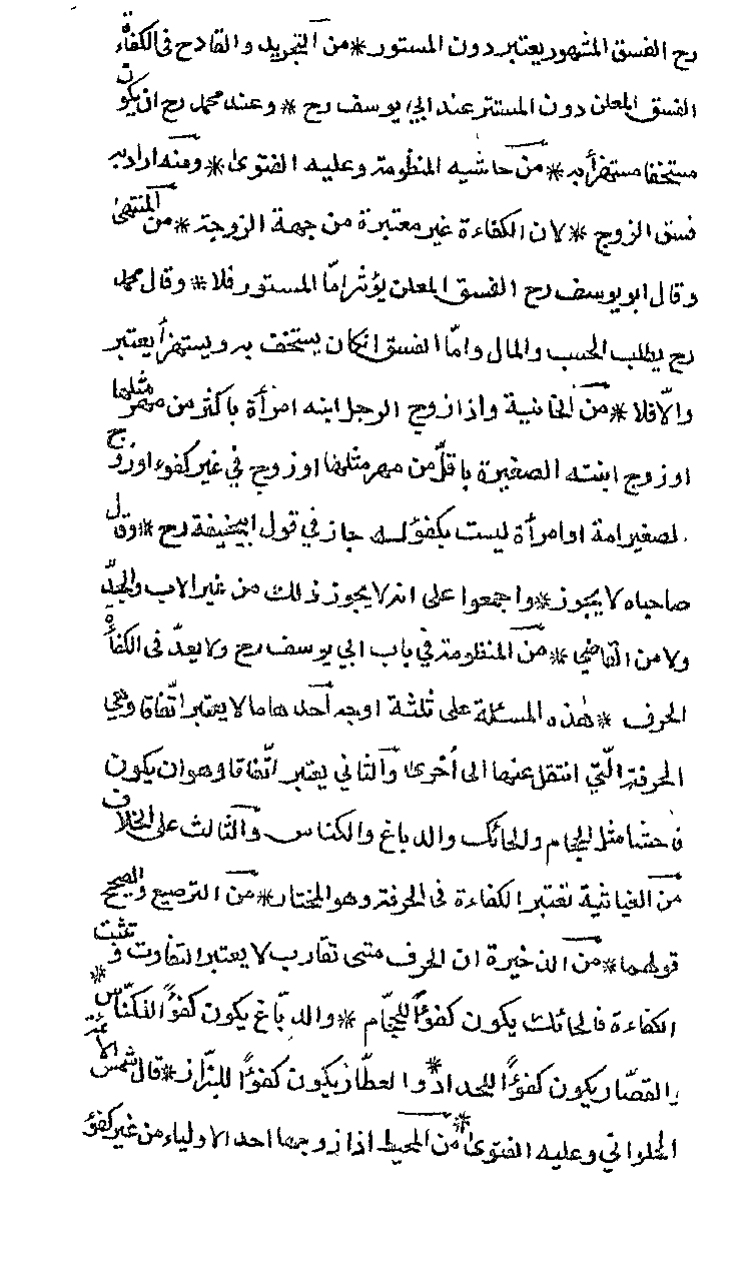 رح الفسق المشهور يعتبر دون المستور * من التجريد والقادح فى الكفاءة
الفسق المعلن دون المستتر عند ابي يوسف رح * وعند محمد رح ان يكون
مستخفا مستهزأ به * من حاشيه المنظومة وعليه الفتوى * ومنه اراد به
فسق الزوج * لان الكفاءة غير معتبرة من جهة الزوجة * من المنتهى
وقال ابو يوسف رح الفسق المعلن يؤثر امّا المستور فلا * وقال محمد
رح يطلب الحسب والمال وامّا الفسق انكان يستخف به ويستهزأ يعتبر
والّا فلا * من الخانية واذا زوج الرجل ابنه امرأة باكثر من مهر مثلها
او زوج ابنته الصغيرة باقلّ من مهر مثلها او زوج في غير كفوء او زوج
لصغير امة او امرأة ليست بكفؤ له جاز في قول ابيحنيفة رح * وقال
صاحباه لا يجوز * واجمعوا على انه لا يجوز ذلك من غير الاب والجدّ
ولا من القاضي * من المنظومة في باب ابي يوسف رح ولا يعدّ فى الكفأة
الحرف * هذه المسئلة على ثلثة اوجه أحدهاما لا يعتبر اتّفاقا وهي
الحرفة الّتي انتقل عنها الى أخرى والثاني يعتبر اتّفاقا وهو ان يكون
فاحشا مثل الحجام والحائك والدباغ والكناس والثالث على الخلاف
من الغياثية تعتبر الكفاءة فى الحرفة وهو المختار * من الترصيع والصحيح
قولهما * من الذخيرة ان الحرف متى تقارب لا يعتبر التفاوت وتثبت
الكفاءة فالحائك يكون كفوًا للحجّام * والدبّاغ يكون كفوًا للكنّاس *
والقصّار يكون كفوًا للحداد * والعطّار يكون كفوًا للبزّاز * قال شمس الائمة
الحلواني وعليه الفتوى * من المحيط اذا زوجها احد الاولياء من غير كفؤ